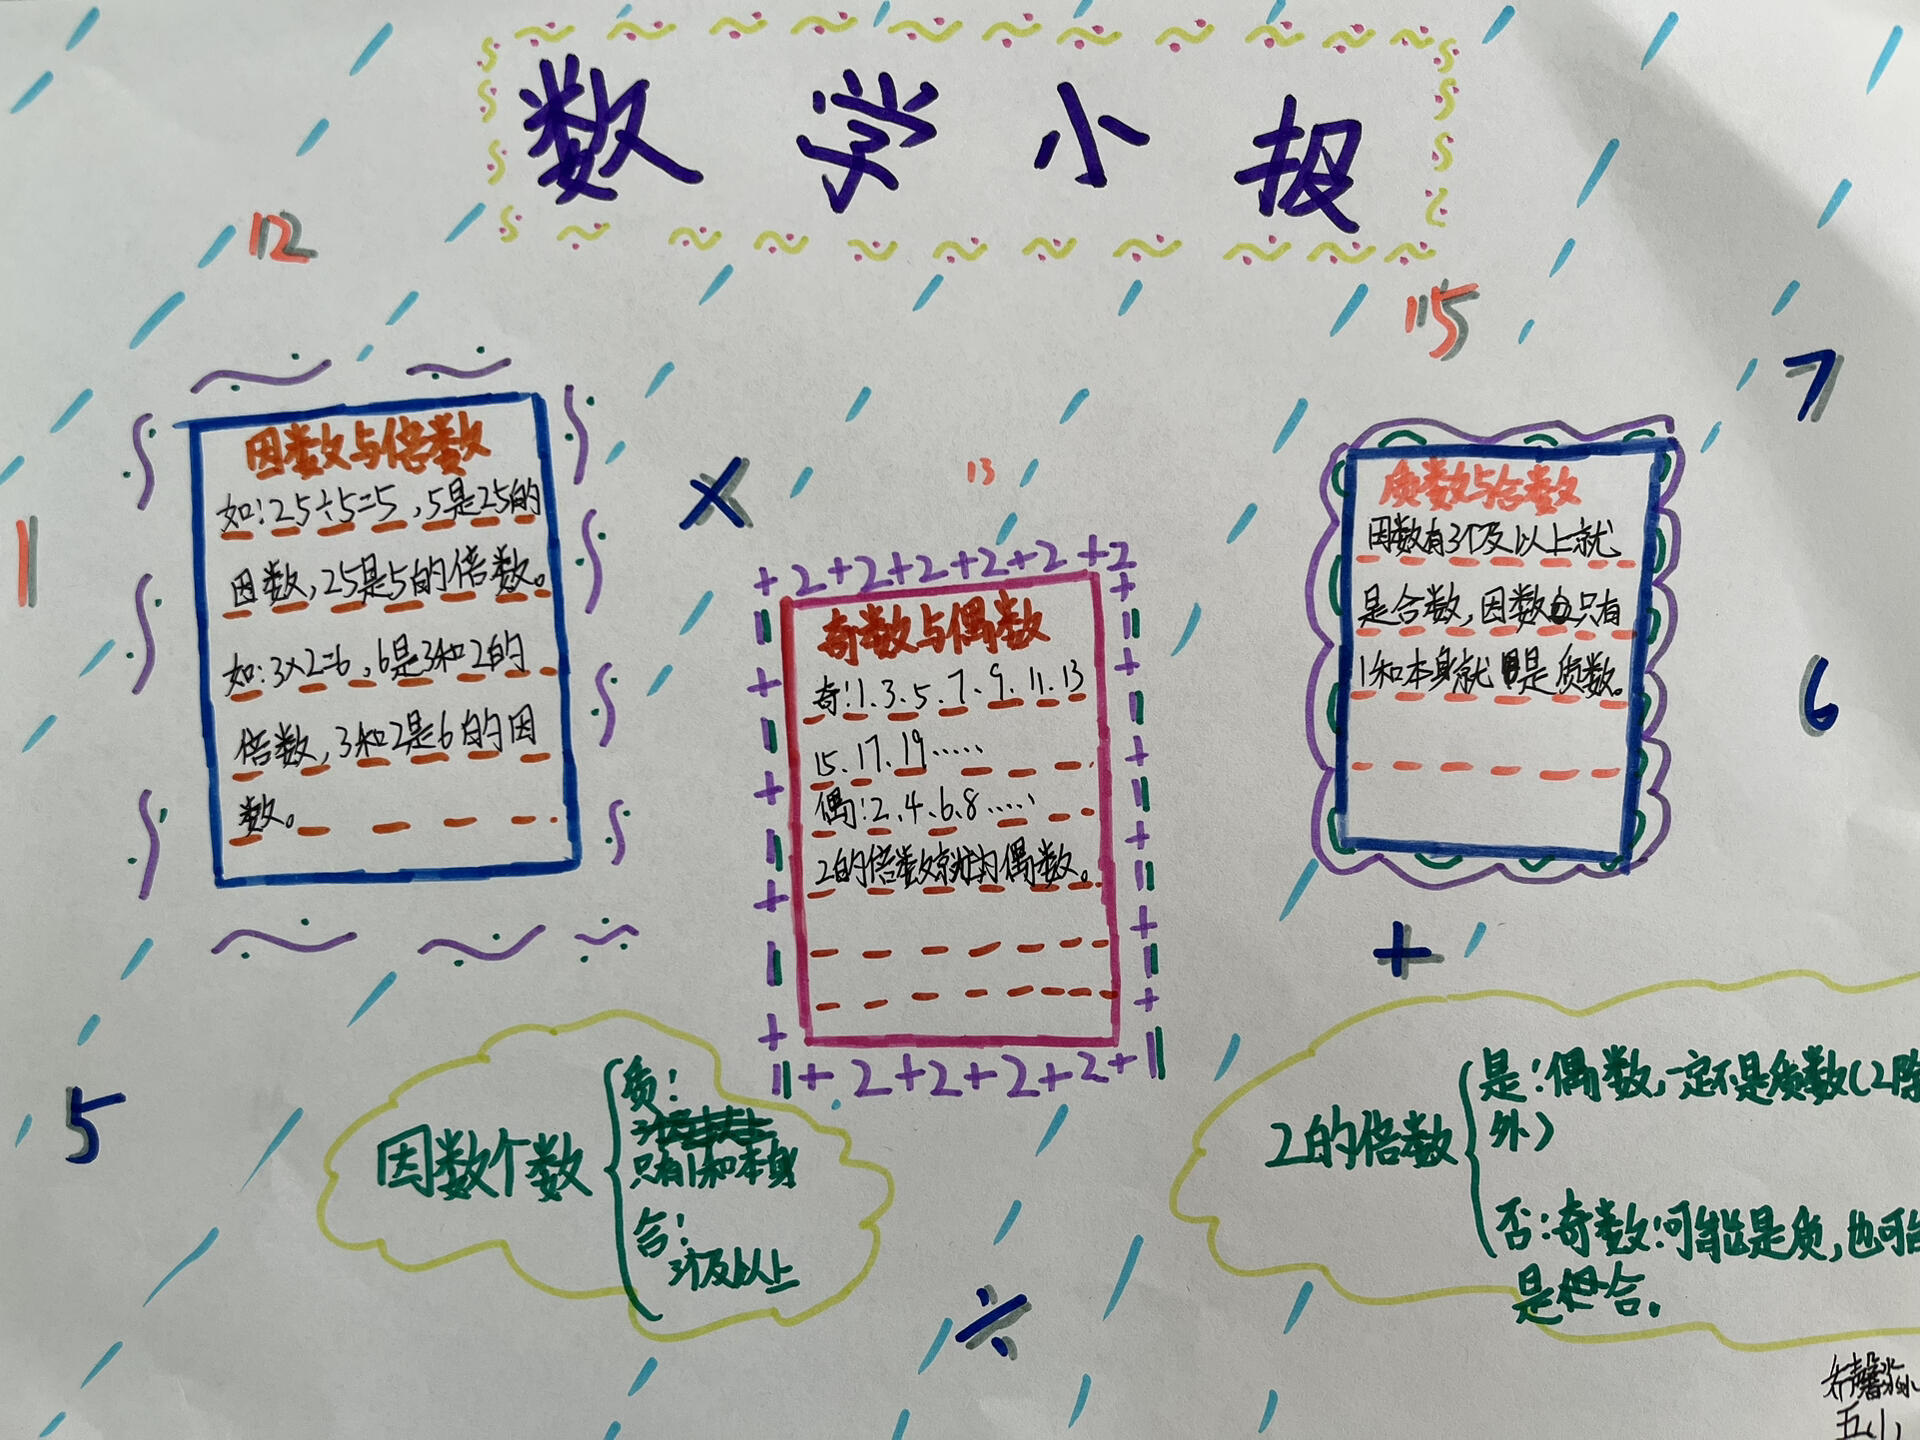 数学小报
12
15
7
因数与倍数
如:25÷5=5,5是25的
因数,25是5的倍数。
如:3×2=6,6是3和2的
倍数,3和2是6的因
数。
×
13
1
+2+2+2+2+2+2
奇数与偶数
奇:1.3.5.7.9.11.13
15.17.19……
偶:2.4.6.8……
2的倍数就为偶数。
+2+2+2+2+
质数与合数
因数有3个及以上就
是合数,因数只有
1和本身就是质数。
6
+
5
因数个数
质:
只有1和本身
合:
3个及以上
÷
2的倍数
是:偶数,一定不是质数(2除
外)
否:奇数:可能是质,也可能
是合。
五小